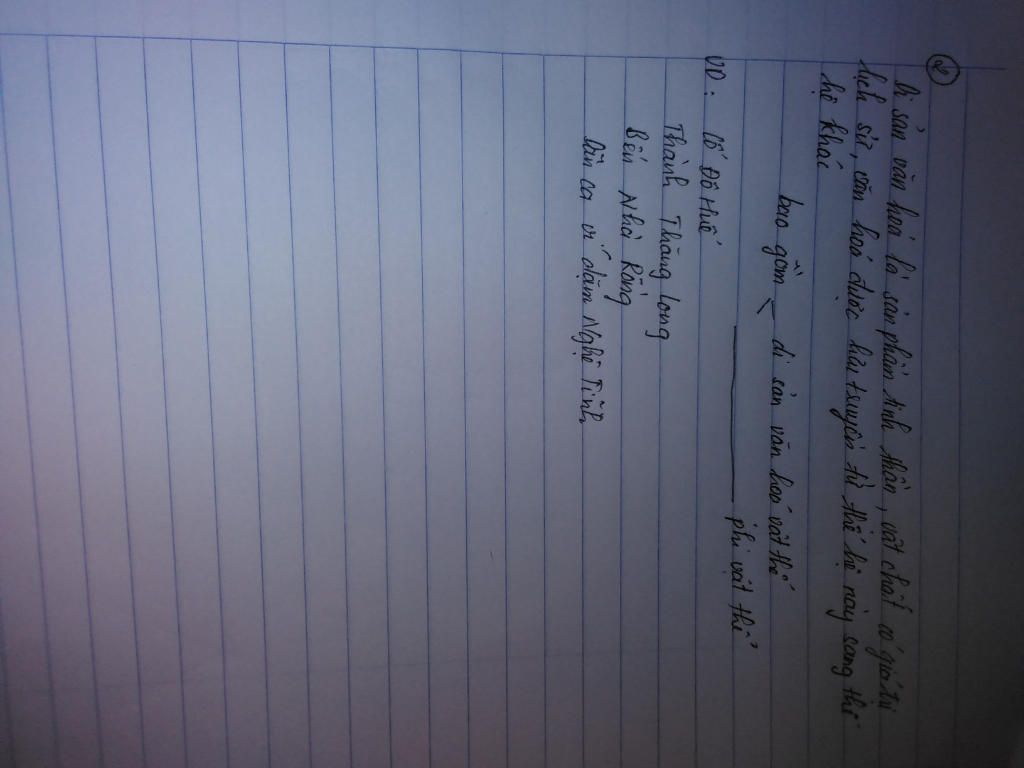 ②
Di sản văn hoá là sản phẩm tinh thần, vật chất có giá trị
lịch sử, văn hoá được lưu truyền từ thế hệ này sang thế
hệ khác
bao gồm < di sản văn hoá vật thể
phi vật thể
VD: Cố Đô Huế
Thành Thăng Long
Bến Nhà Rồng
Dân ca ví dặm Nghệ Tĩnh.